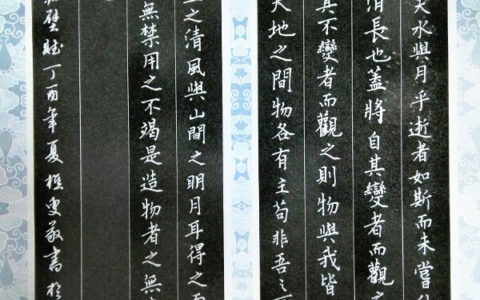 夫水與月乎逝者如斯而未嘗
消長也蓋將自其變者而觀之
其不變者而觀之則物與我皆
天地之間物各有主苟非吾之
上之清風與山間之明月耳得之而
無禁用之不竭是造物者之無
壁賦丁酉年夏樵叟敬書於